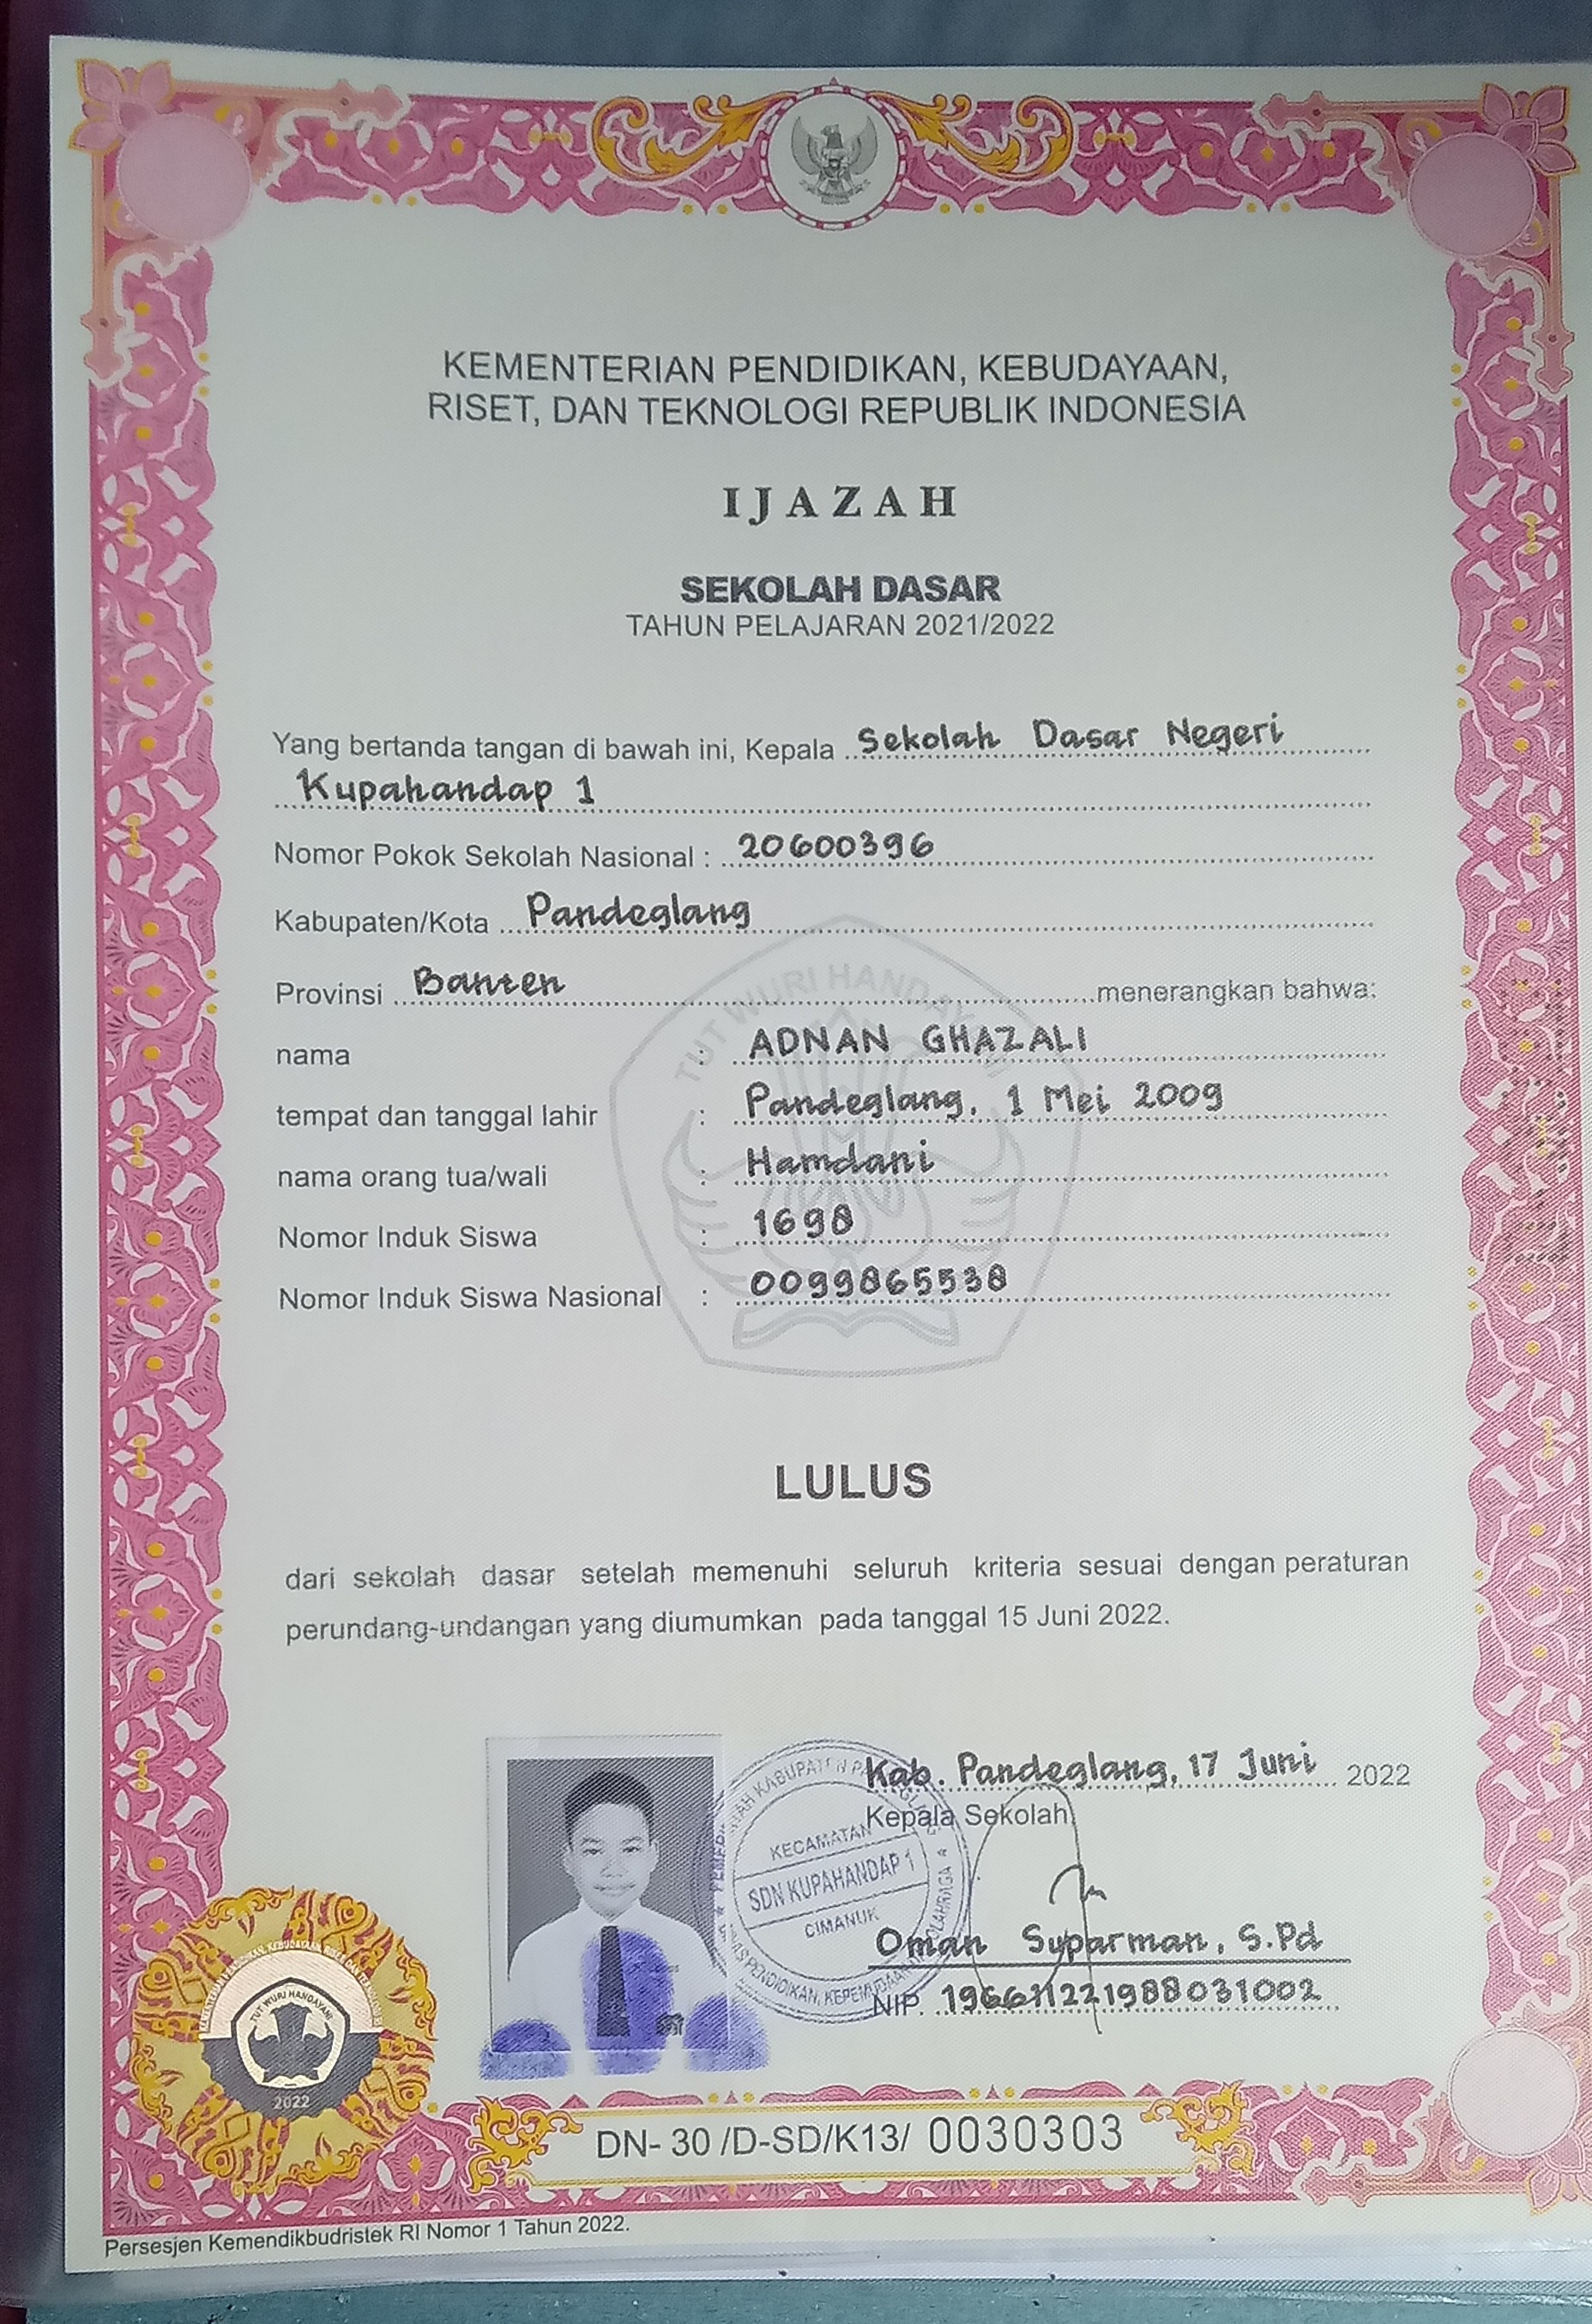 KEMENTERIAN PENDIDIKAN, KEBUDAYAAN,
RISET, DAN TEKNOLOGI REPUBLIK INDONESIA
IJAZAH
SEKOLAH DASAR
TAHUN PELAJARAN 2021/2022
Yang bertanda tangan di bawah ini, Kepala Sekolah Dasar Negeri
Kupahandap 1
Nomor Pokok Sekolah Nasional : 20600396
Kabupaten/Kota Pandeglang
Provinsi Banten menerangkan bahwa:
TUT WURI HANDAYANI
nama : ADNAN GHAZALI
tempat dan tanggal lahir : Pandeglang, 1 Mei 2009
nama orang tua/wali : Hamdani
Nomor Induk Siswa : 1698
Nomor Induk Siswa Nasional : 0099865538
LULUS
dari sekolah dasar setelah memenuhi seluruh kriteria sesuai dengan peraturan
perundang-undangan yang diumumkan pada tanggal 15 Juni 2022.
Kab. Pandeglang, 17 Juni 2022
Kepala Sekolah
KECAMATAN
SDN KUPAHANDAP 1
CIMANUK
Oman Suparman, S.Pd
NIP. 196611221988031002
TUT WURI HANDAYANI
2022
DN- 30 /D-SD/K13/ 0030303
Persesjen Kemendikbudristek RI Nomor 1 Tahun 2022.